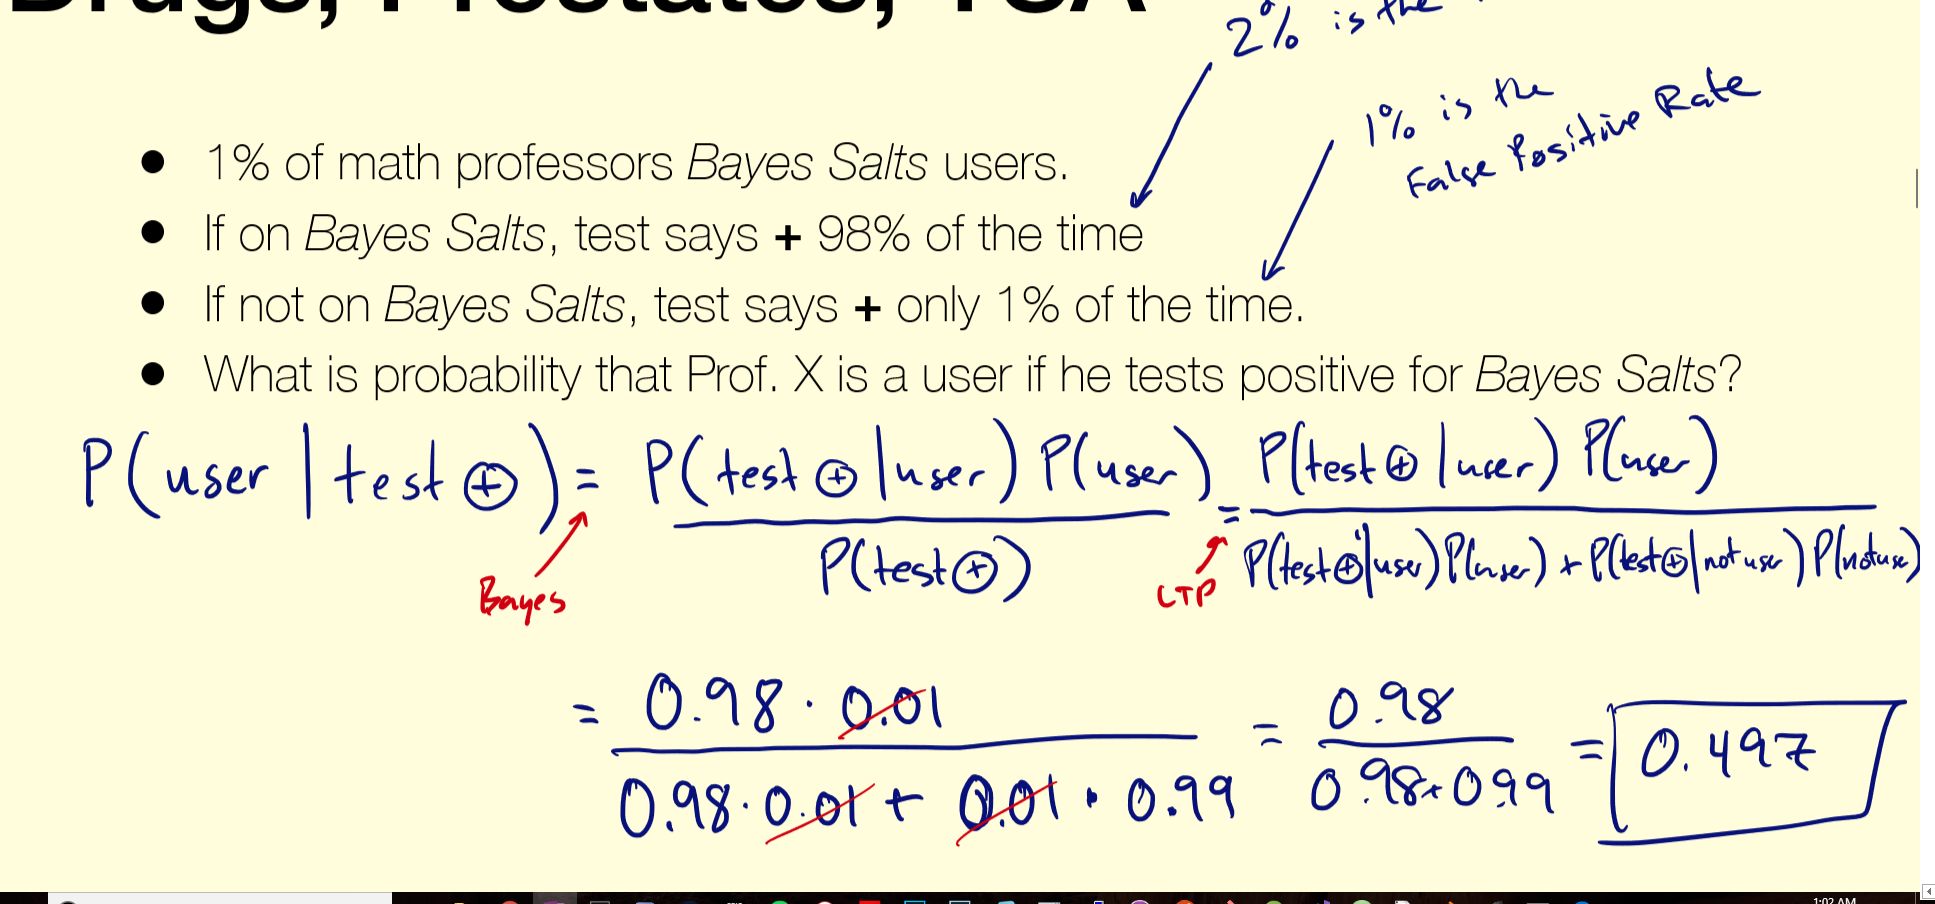 Drugs, Prostates, TSA
2% is the
1% is the
False Positive Rate
• 1% of math professors Bayes Salts users.
• If on Bayes Salts, test says + 98% of the time
• If not on Bayes Salts, test says + only 1% of the time.
• What is probability that Prof. X is a user if he tests positive for Bayes Salts?
P(user | test ⊕) = P(test ⊕ | user) P(user) / P(test ⊕) = P(test ⊕ | user) P(user) / P(test ⊕ | user) P(user) + P(test ⊕ | not user) P(not use)
Bayes
LTP
= 0.98 · 0.01 / 0.98 · 0.01 + 0.01 · 0.99 = 0.98 / 0.98 + 0.99 = 0.497
1:02 AM